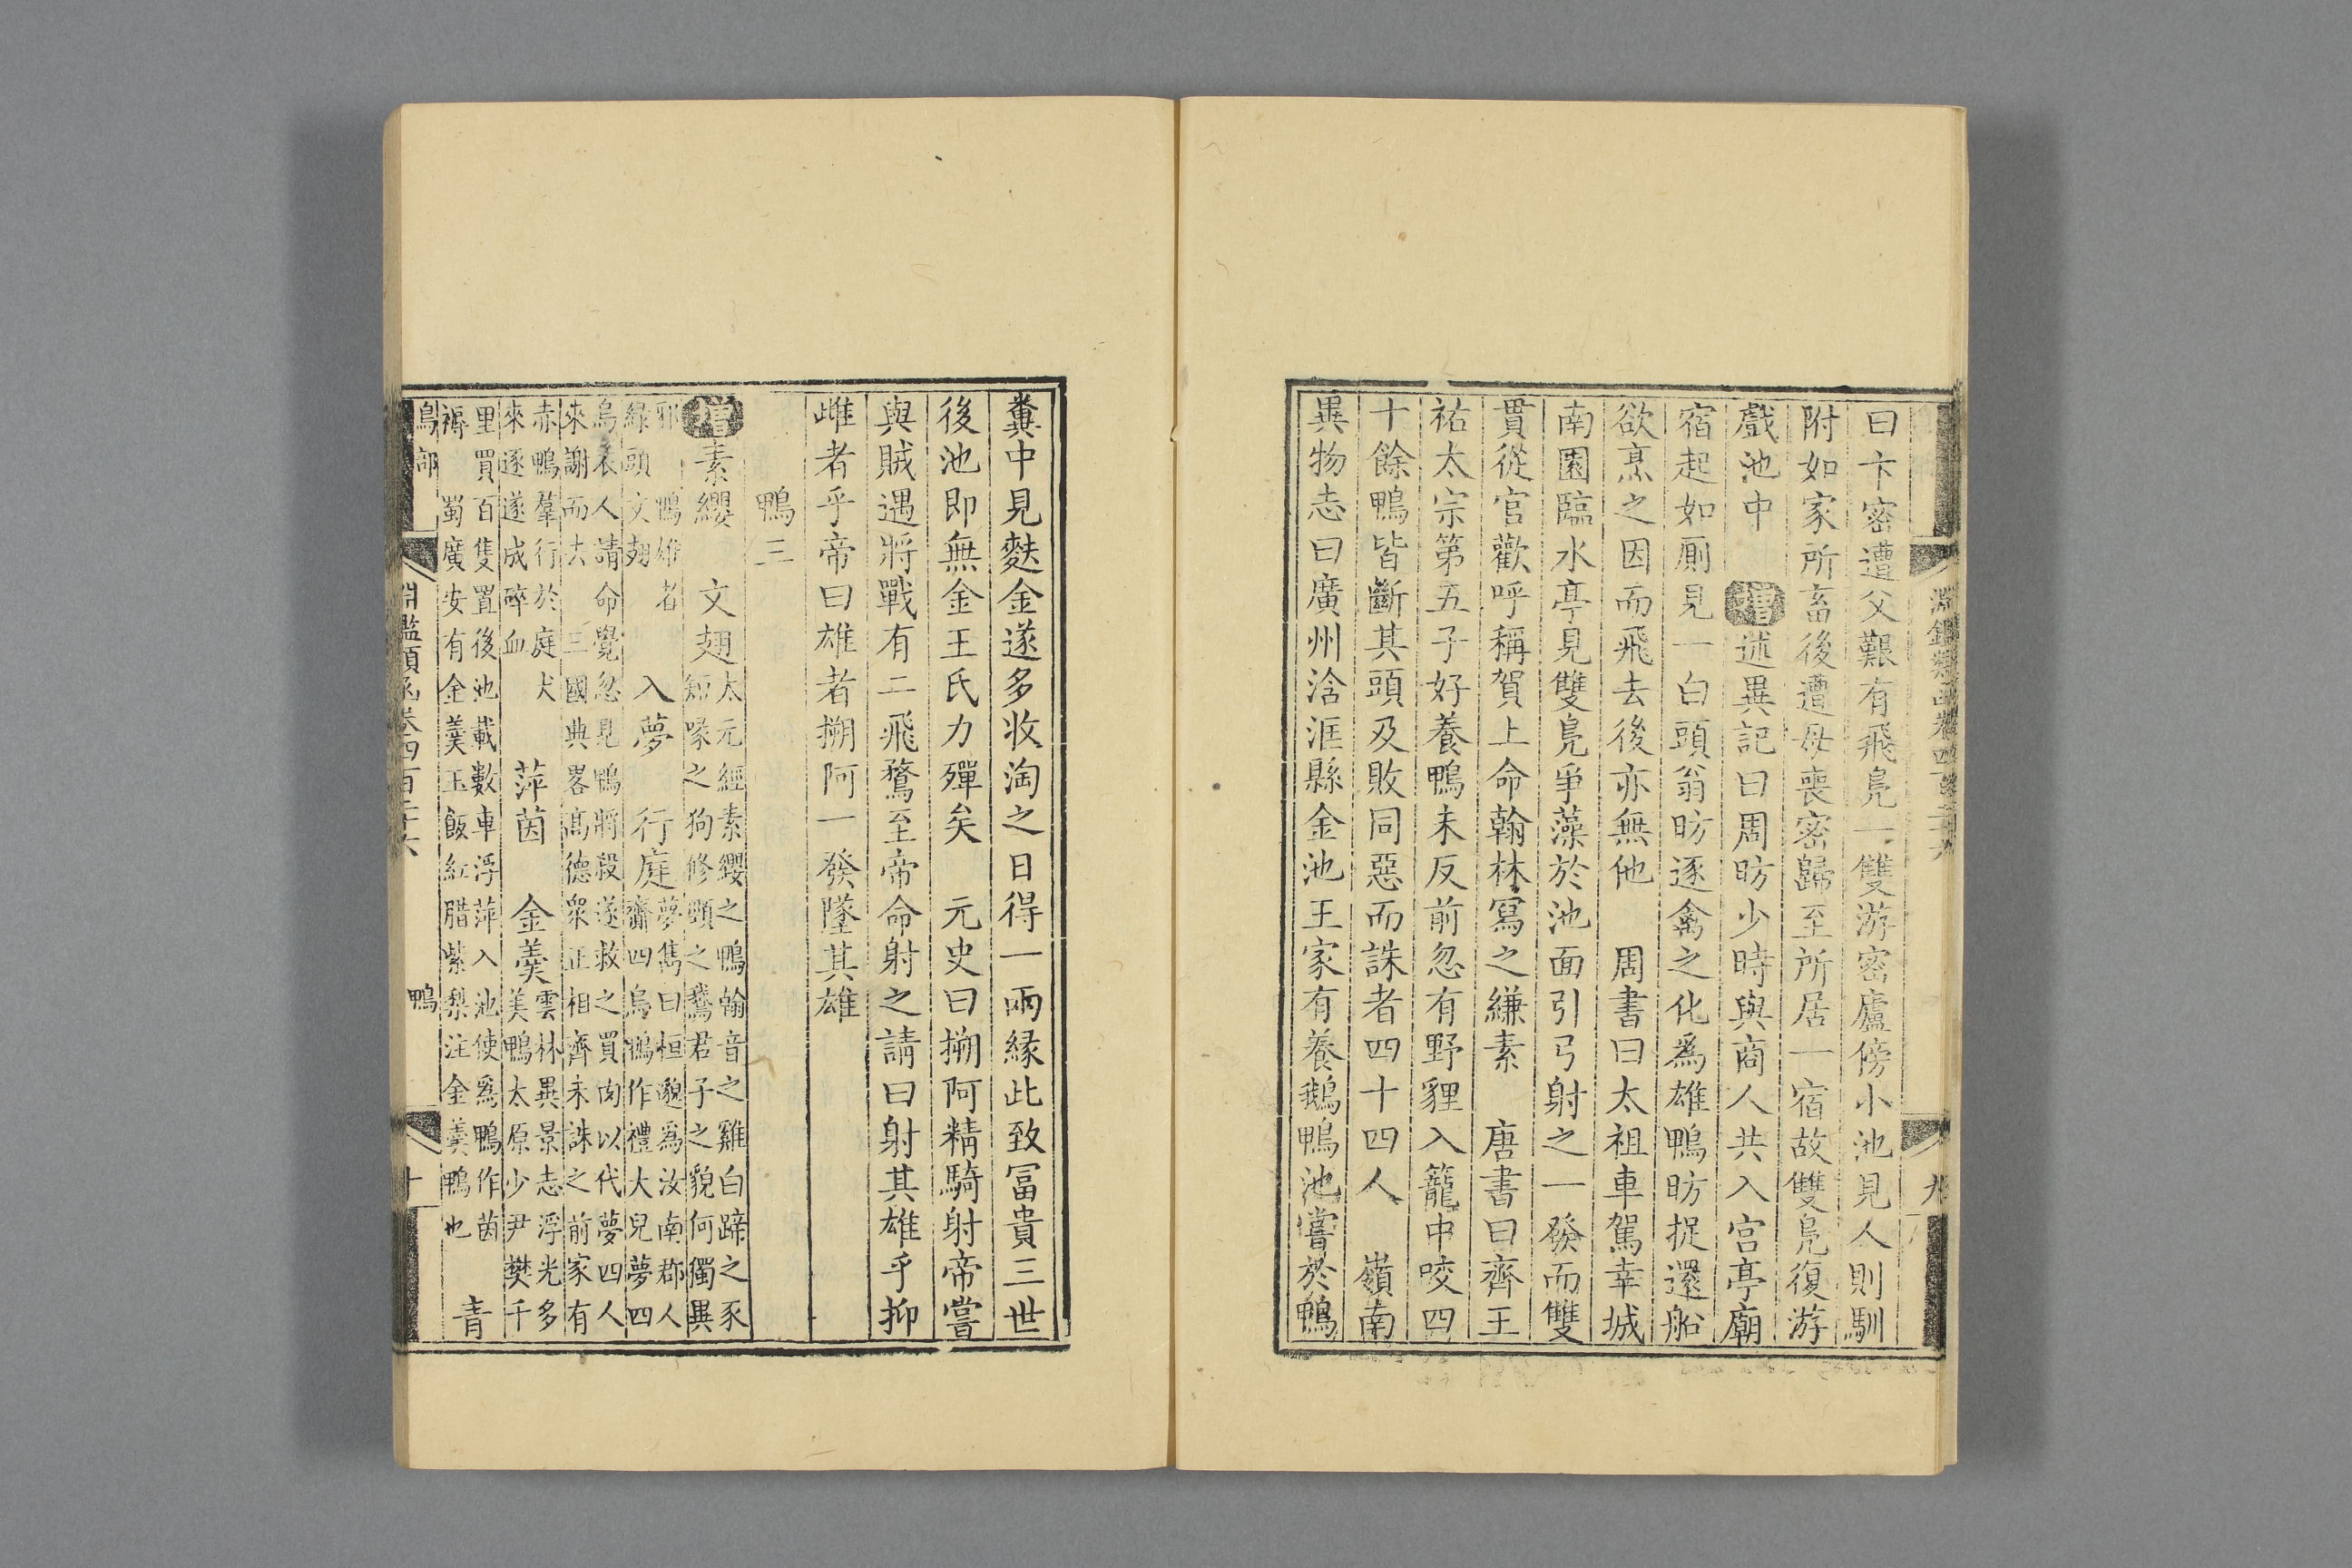 淵鑑類函卷四百二十六
九
曰卞密遭父艱有飛鳧一雙游密廬傍小池見人則馴
附如家所畜後遭母喪密歸至所居一宿故雙鳧復游
戲池中 增述異記曰周昉少時與商人共入宫亭廟
宿起如厠見一白頭翁昉逐禽之化爲雄鴨昉捉還船
欲烹之因而飛去後亦無他 周書曰太祖車駕幸城
南園臨水亭見雙鳧爭藻於池面引弓射之一發而雙
貫從官歡呼稱賀上命翰林寫之縑素 唐書曰齊王
祐太宗第五子好養鴨未反前忽有野貍入籠中咬四
十餘鴨皆斷其頭及敗同惡而誅者四十四人 嶺南
異物志曰廣州浛洭縣金池王家有養鵝鴨池嘗於鴨
糞中見麩金遂多收淘之日得一兩縁此致冨貴三世
後池即無金王氏力殫矣 元史曰搠阿精騎射帝嘗
與賊遇將戰有二飛鶩至帝命射之請曰射其雄乎抑
雌者乎帝曰雄者搠阿一發墜其雄
鴨三
增素纓 文翅 太元經素纓之鴨翰音之雞白蹄之豕
短喙之狗修頸之鵞君子之貌何獨異
邪 鴨雄者
緑頭文翅 入夢 行庭 夢雋曰桓邈爲汝南郡人
齎四烏鴨作禮大兒夢四
烏衣人請命覺忽見鴨將殺遂救之買肉以代夢四人
來謝而去 三國典畧髙德衆正相齊未誅之前家有
赤鴨羣行於庭犬
來逐遂成碎血 萍茵 金羹 雲林異景志浮光多
美鴨太原少尹樊千
里買百隻置後池載數車浮萍入池使爲鴨作茵
褥 蜀廣安有金羹玉飯紅腊紫梨注金羹鴨也 青
鳥部
淵鑑類函卷四百二十六
鴨
十